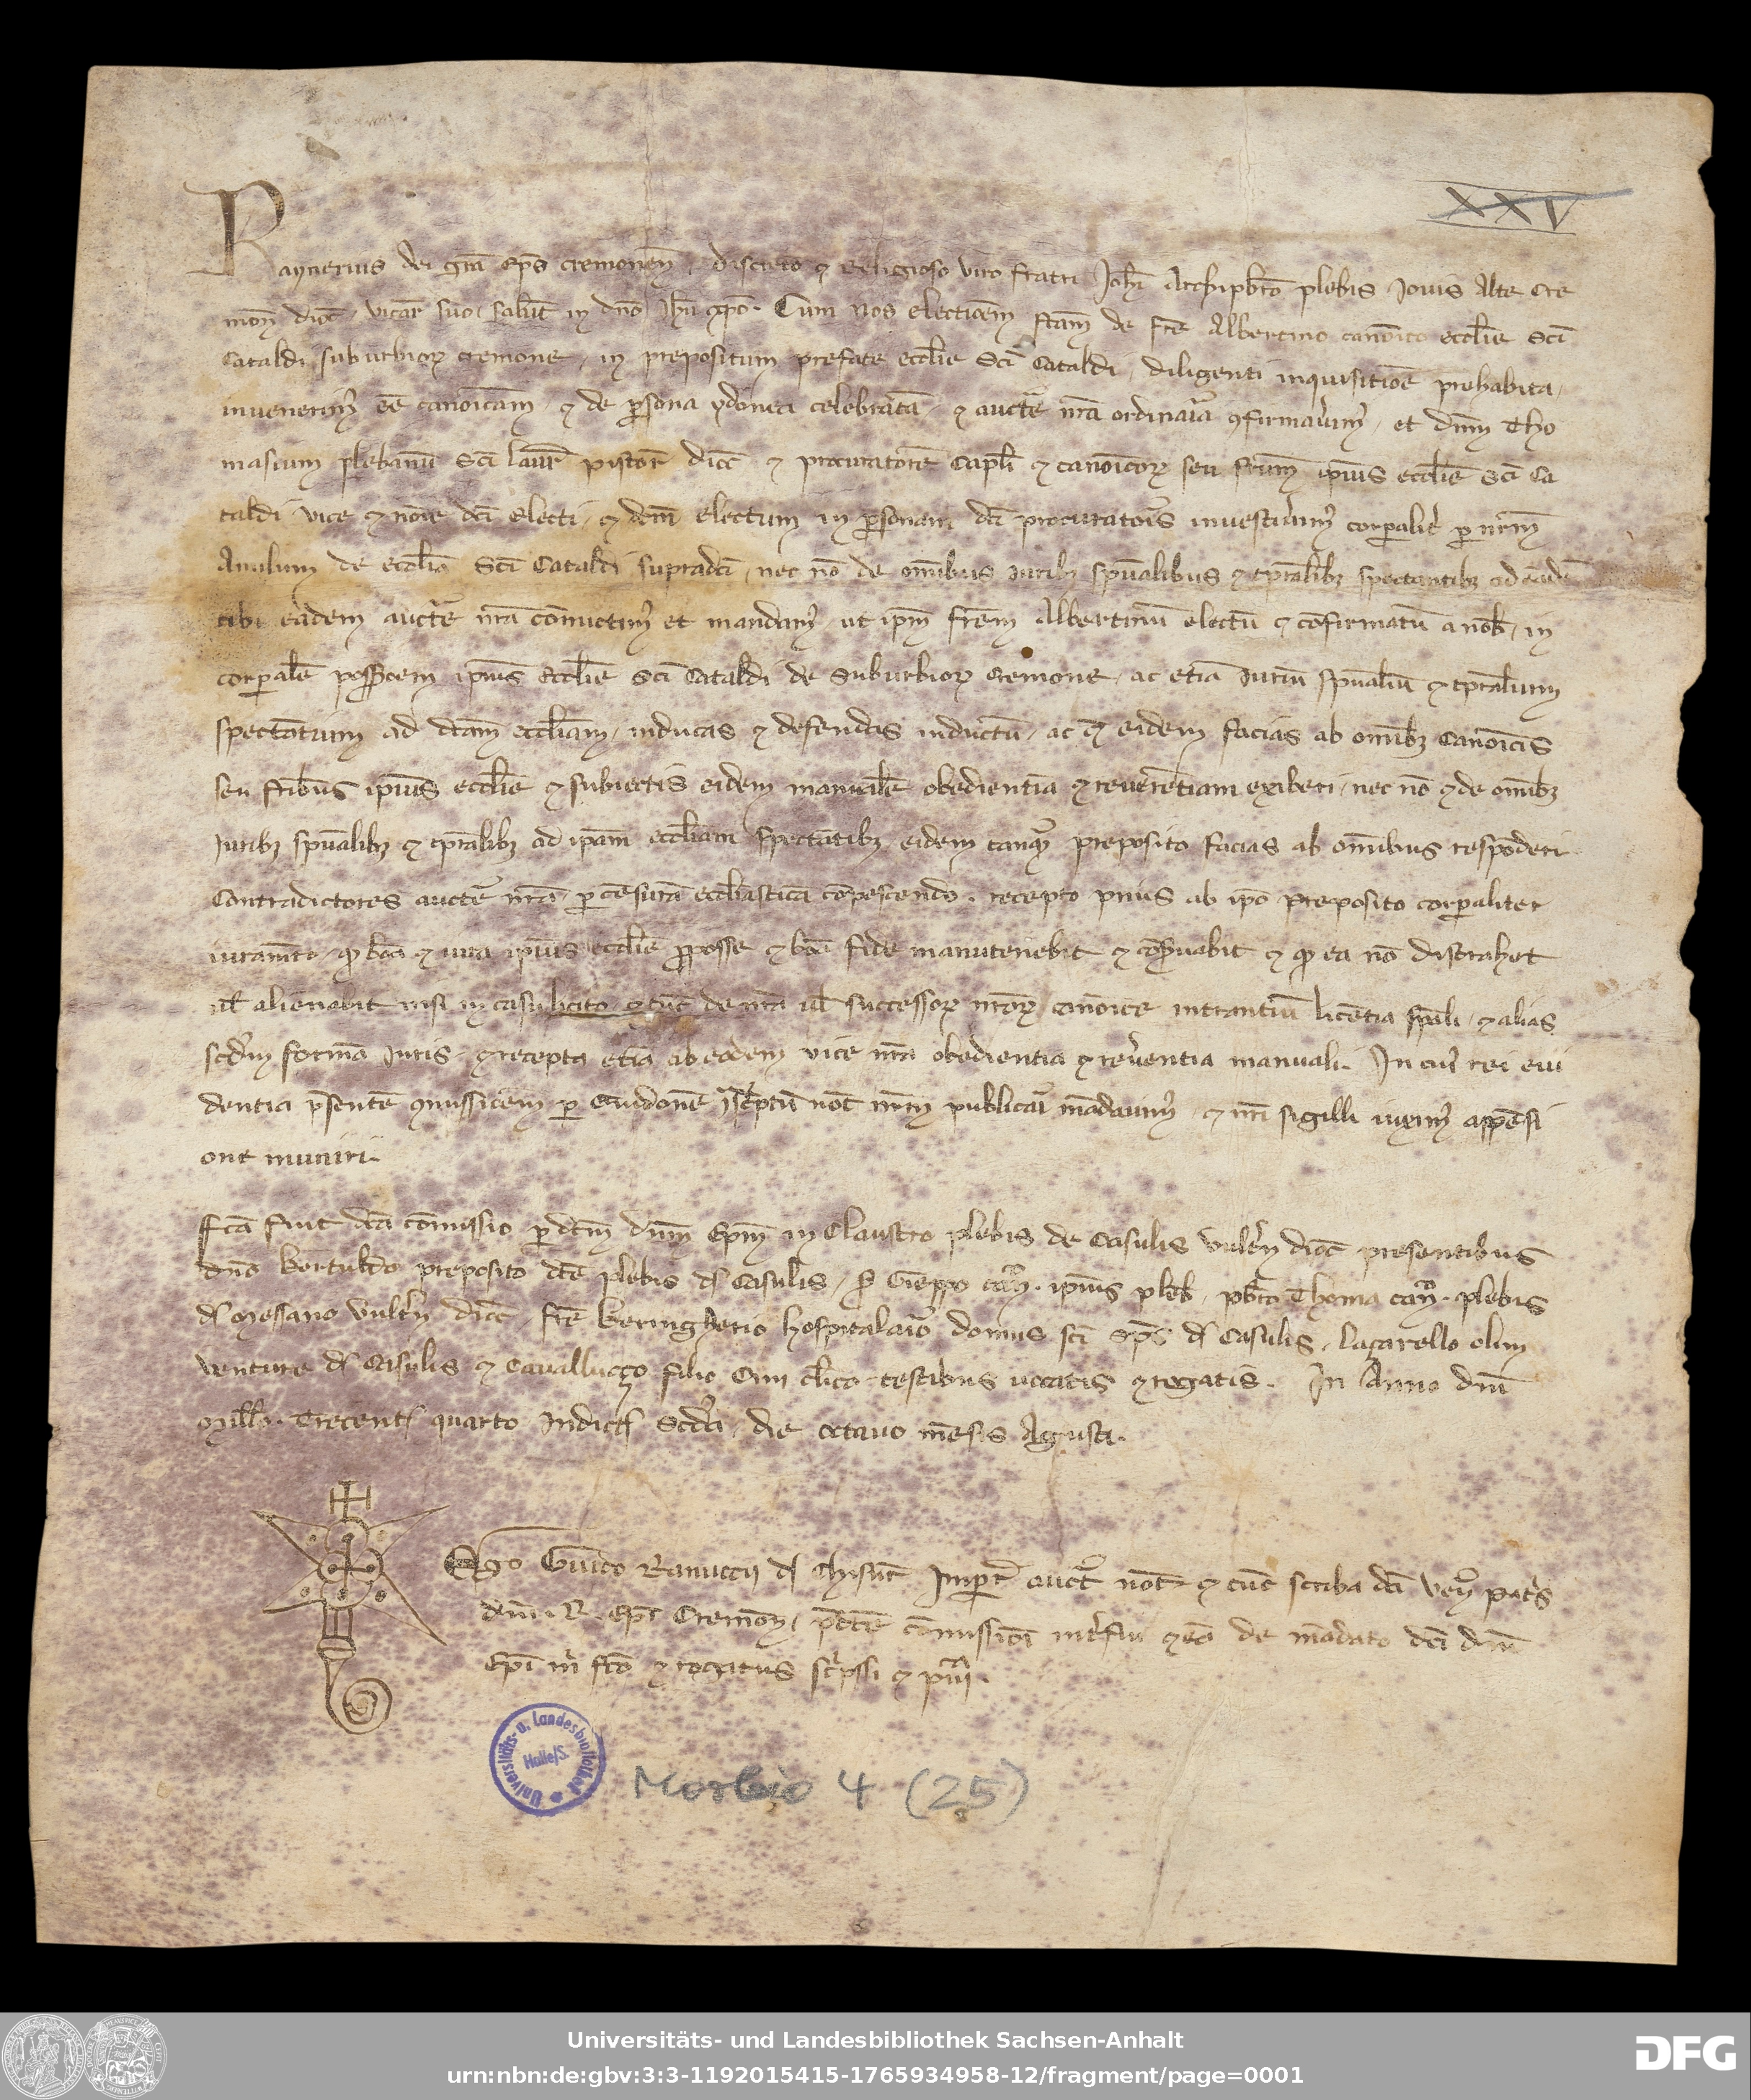 XXV
Raynerius dei gra͞ ep͞s cremonen̄. discreto ⁊ religioso viro fratri Joh͞i Archip͞bro plebis Jovis Alte Cre
mon̄ dioc̄. vicar̄ suo. salut̄ in dn͞o Jh͞u xp͞o. Cum nos electio͞em fc͞am de fr͞e Albertino canonico eccl͞ie Sc͞i
Cataldi suburbioꝝ cremone, in prepositum prefate eccl͞ie Sc͞i Cataldi, diligenti inquisitio͞e prehabita,
invenerim͛ ee͞ cano͞icam, ⁊ de ꝑsona ydonea celebrata͞, ⁊ auct͞e nr͞a ordinar͞ia ꝯfirmaverim͛, et dn͞m Tho
masium plebanu͞ Sc͞i Laur͞ pistor͞ dioc̄ ⁊ procuratore͞ Capl͞i ⁊ cano͞icoꝝ seu fr͞um ip͞ius eccl͞ie Sc͞i Ca
taldi vice ⁊ no͞ie dc͞i electi, ⁊ dc͞m electum in ꝑsonam dc͞i procuratoris investiverim͛ corꝑalit͛ ꝑ nr͞m
Anulum de eccl͞ia Sc͞i Cataldi supradc͞i, nec no͞ de om͞ibus iurib͛ sp͞ualibus ⁊ tp͞ralibꝫ spectantibꝫ ad ea͞de͞
tibi eadem auct͞e nr͞a co͞mictim͛ et mandam͛, ut ip͞m fr͞em Albertinu͞ electu͞ ⁊ co͞firmatu͞ a nob͞, in
corꝑale͞ possessio͞em ip͞ius eccl͞ie Sc͞i Cataldi de Suburbioꝝ Cremone, ac etia͞ Juriu͞ sp͞ualiu͞ ⁊ tp͞ralium
specta͞tium ad dc͞am eccl͞iam, inducas ⁊ defendas inductu͞, ac ⁊ eidem facias ab om͞ibꝫ Cano͞icis
seu fr͞ibus ip͞ius eccl͞ie ⁊ subiectis eidem manuale͞ obedientia͞ ⁊ revere͞tiam exiberi, nec no͞ ⁊ de om͞ibꝫ
Juribꝫ sp͞ualibꝫ ⁊ tp͞ralibꝫ ad ip͞am eccl͞iam specta͞tibꝫ eidem tanq͞ preposito facias ab om͞ibus respo͞deri
Contradictores auct͞e nr͞a, ꝑ ce͞sura͞ eccl͞iastica͞ co͞pescendo. recepto prius ab ip͞o preposito corꝑaliter
iuram͞to, ꝙ bo͞a ⁊ iura ip͞ius eccl͞ie ꝓ posse ⁊ bo͞a fide manutenebit ⁊ co͞servabit ⁊ ꝙ ea no͞ distrahet
vl͞ alienabit nisi in casu licito ⁊ tu͞c de nr͞a vl͞ successoꝝ nr͞oꝝ cano͞ice intrantiu͞ lice͞tia sp͞ali, ⁊ alias
scd͞m forma͞ Juris, ⁊ recepta etia͞ ab eodem vice nr͞a obedientia ⁊ rev͛entia manuali. In cui͛ rei evi
dentia p͞sente͞ ꝯmissio͞em ꝑ Guidone͞ not͞ nr͞m publicar͞i ma͞davim͛, ⁊ nr͞i sigilli appe͞si
one muniri.
Fc͞a fuit dc͞a co͞missio ꝑ dc͞m dn͞m Ep͞m in Claustro plebis de Casulis vult͛n̄ dioc̄ presentibus
dn͞o Bertuldo preposito dc͞e plebis d̄ Casulis, ip͞ius pleb͞, p͞bro Thoma can̄. plebis
d̄ Messano Vult͛n̄ dioc̄, fr͞e Beringherio hospitalar͞io domus sc͞i Sp͞s d̄ Casulis, Laçarello olim
venture d̄ Casulis ⁊ Cavalluccço filio cl͞ico testibus vocatis ⁊ rogatis. In Anno dn͞i
Mill͞o. Trecent͞ quarto Indict͞ Scd͞a, die octavo me͞sis Agusti.
Ego Guido Ranuccii d̄ Chisure Imper͞ auct͞e not͞ ⁊ tu͞c scriba dc͞i ven͞ patris
dn͞i. R. Ep͞i Cremon̄, p͞dc͞e co͞missio͞i int͛fui ⁊ ea͞ de ma͞dato dc͞i dn͞i
Ep͞i m͛ fc͞o ⁊ rogatus sc͛psi ⁊
Universitäts- u. Landesbibliothek Halle/S.
Morbio 4 (25)
Universitäts- und Landesbibliothek Sachsen-Anhalt
urn:nbn:de:gbv:3:3-1192015415-1765934958-12/fragment/page=0001
DFG